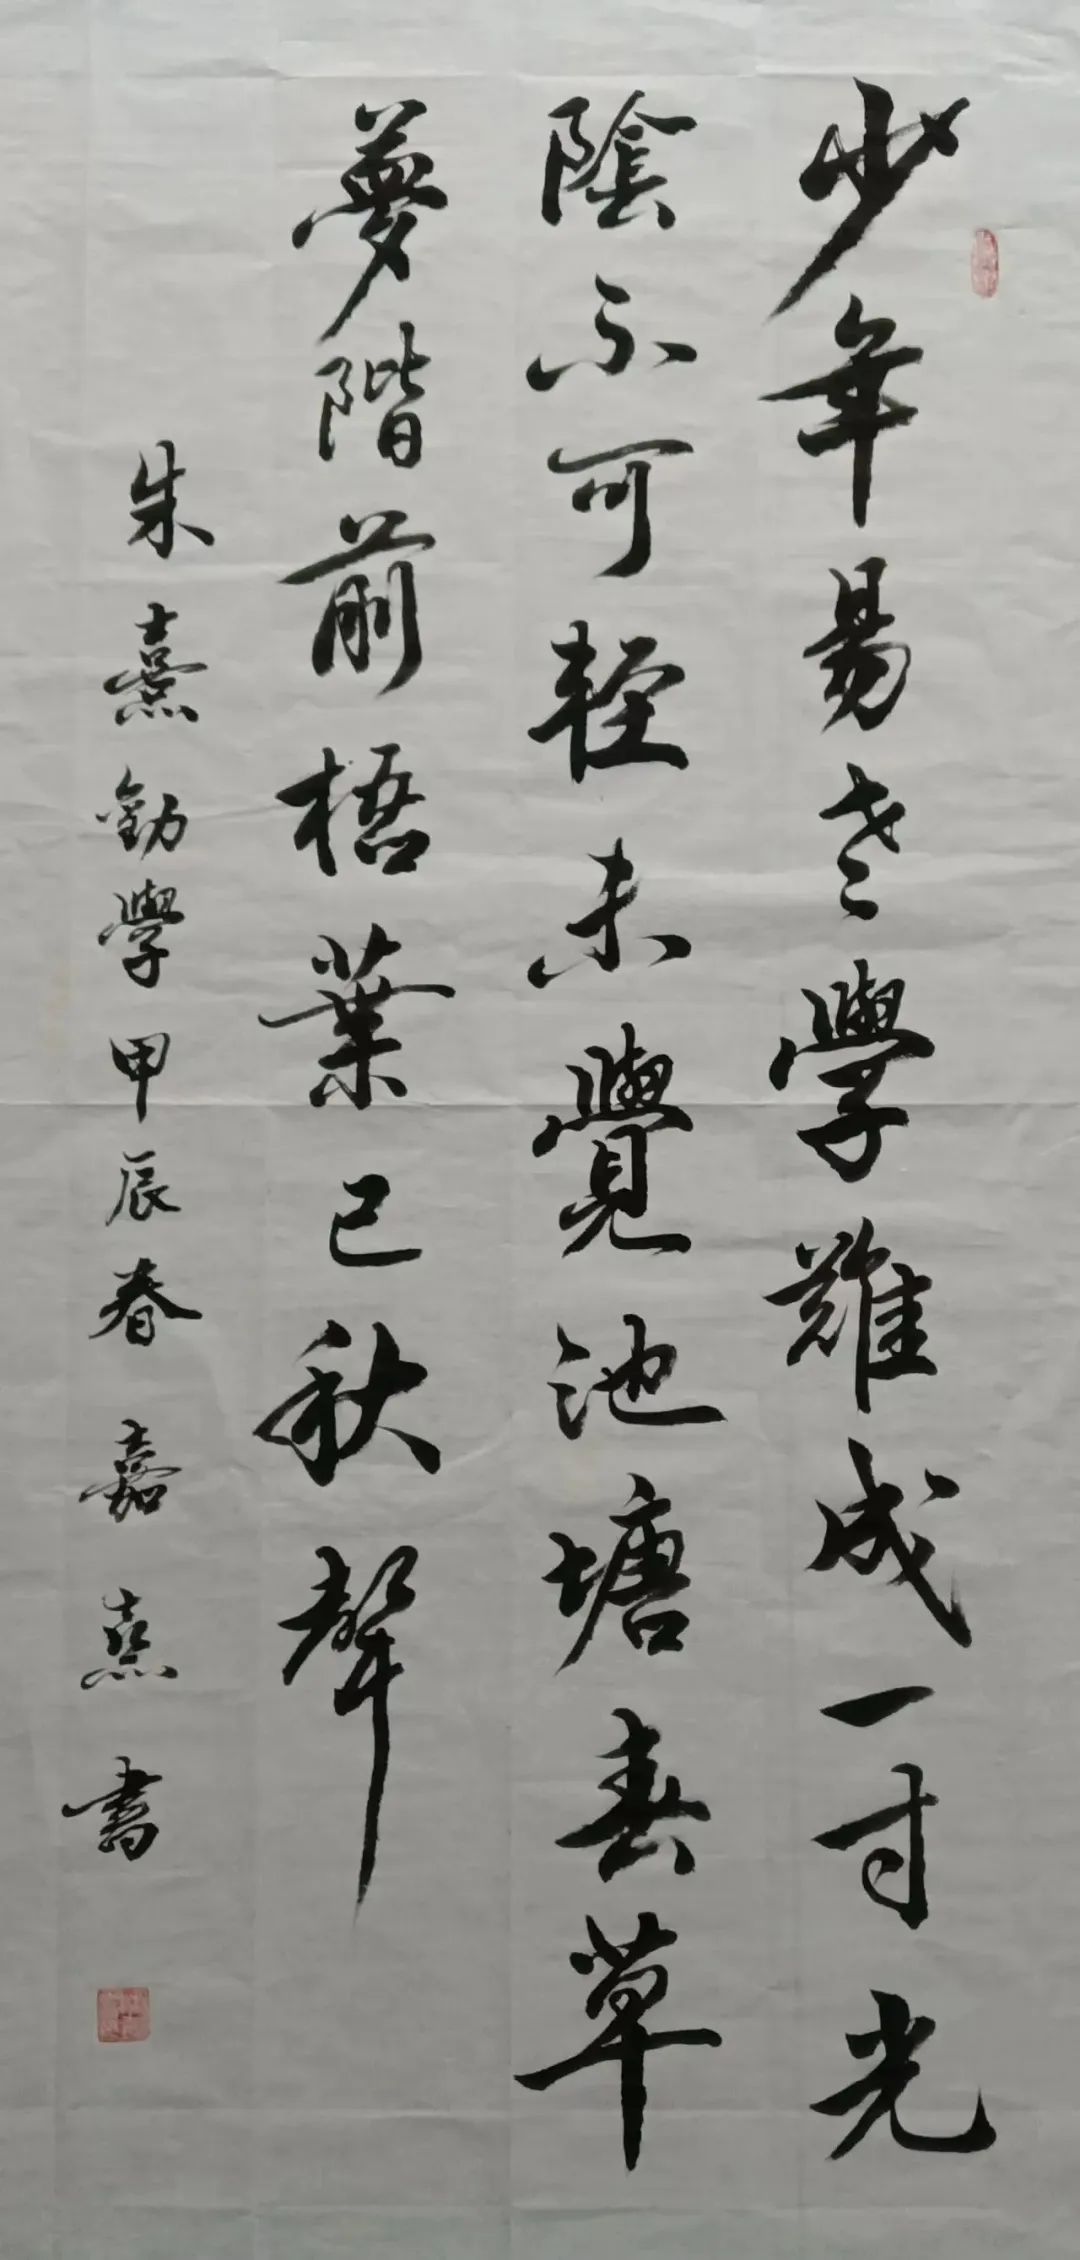 少年易老學難成一寸光
陰不可輕未覺池塘春草
夢階前梧葉已秋聲
朱熹勸學甲辰春嘉熹書